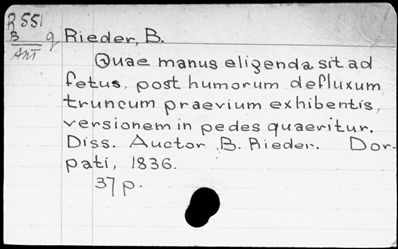 R551
B q Rieder, B.
Am
Quae manus eligenda sit ad
fetus, post humorum defluxum
truncum praevium exhibentis,
versionem in pedes quaeritur.
Diss. Auctor B. Rieder. Dor-
pati, 1836.
37 p.